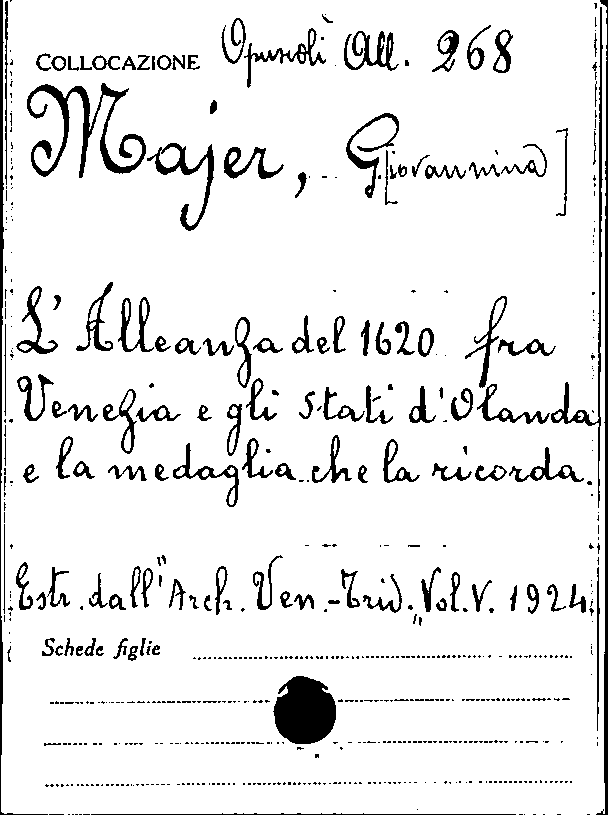 COLLOCAZIONE Opuscoli All. 268
Majer, G[iovannina]
L'Alleanza del 1620 fra
Venezia e gli Stati d'Olanda
e la medaglia che la ricorda.
Estr. dall'"Arch. Ven.-Trid." Vol. V. 1924.
Schede figlie